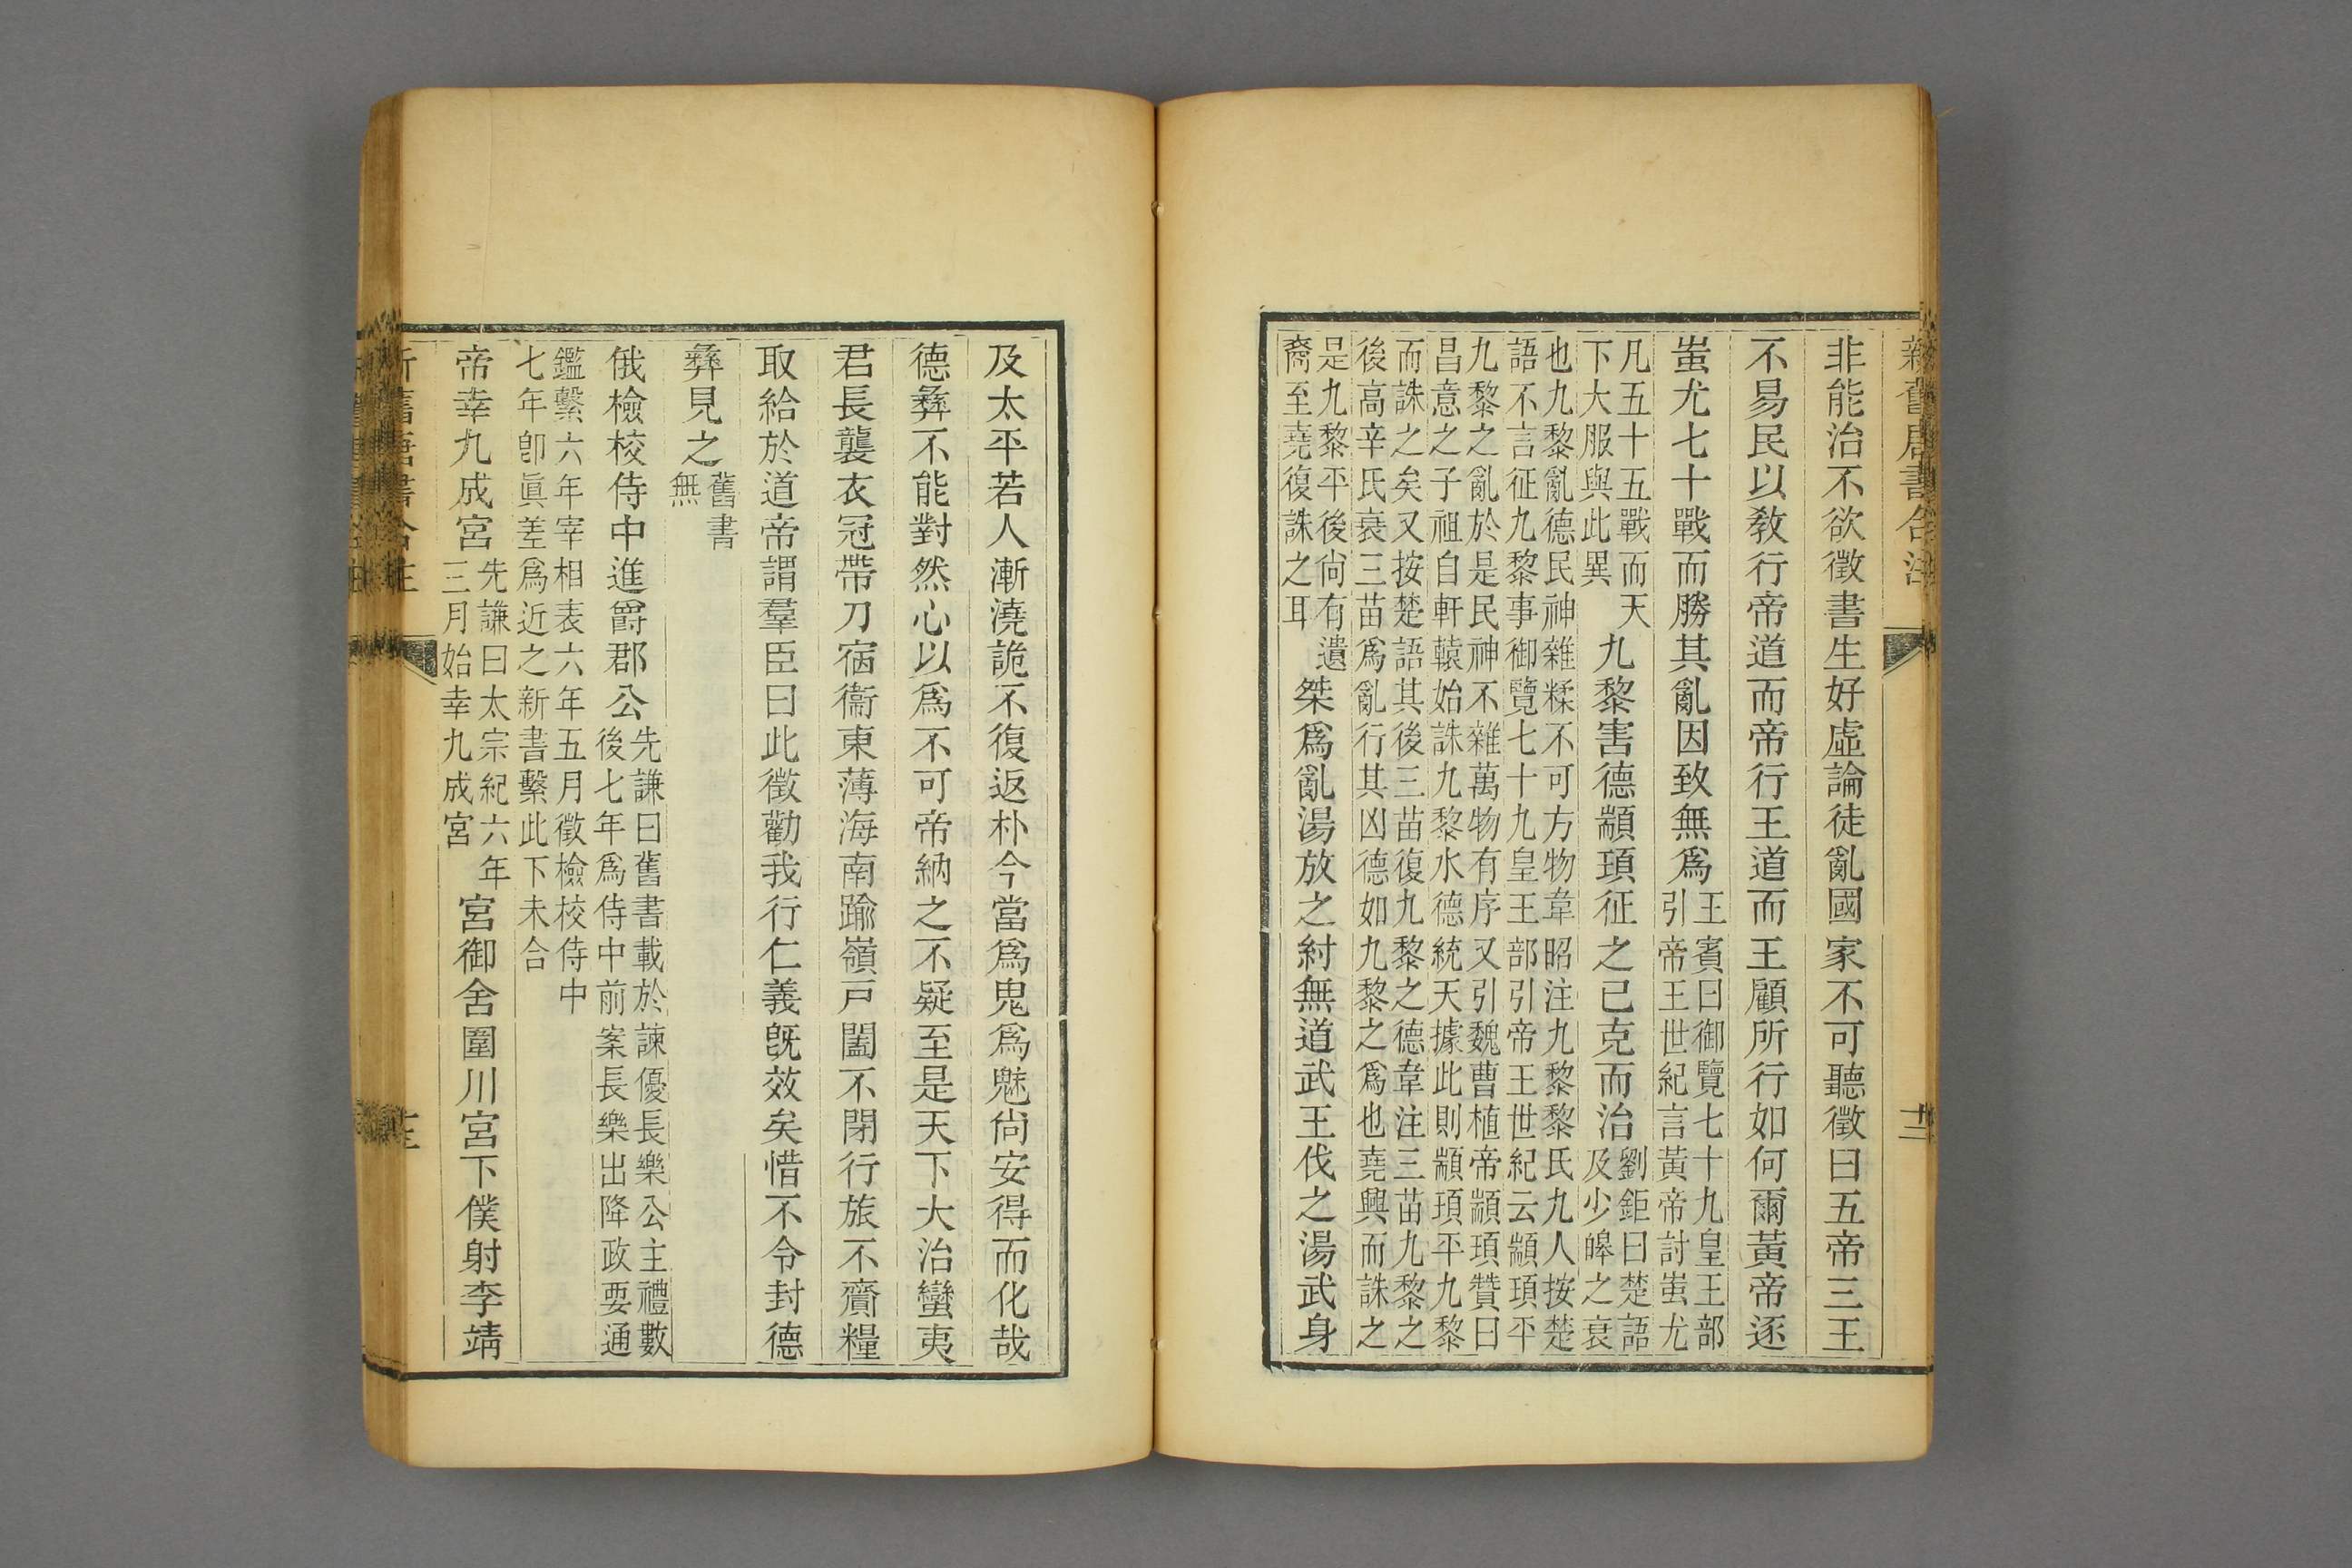 新舊唐書合注
十二
非能治不欲徵書生好虛論徒亂國家不可聽徵曰五帝三王
不易民以敎行帝道而帝行王道而王顧所行如何爾黃帝逐
蚩尤七十戰而勝其亂因致無爲
王賓曰御覽七十九皇王部
引帝王世紀言黃帝討蚩尤
凡五十五戰而天
下大服與此異
九黎害德顓頊征之已克而治
劉鉅曰楚語
及少皞之衰
也九黎亂德民神雜糅不可方物韋昭注九黎黎氏九人按楚
語不言征九黎事御覽七十九皇王部引帝王世紀云顓頊平
九黎之亂於是民神不雜萬物有序又引魏曹植帝顓頊贊曰
昌意之子祖自軒轅始誅九黎水德統天據此則顓頊平九黎
而誅之矣又按楚語其後三苗復九黎之德韋注三苗九黎之
後高辛氏衰三苗爲亂行其凶德如九黎之爲也堯興而誅之
是九黎平後尙有遺
裔至堯復誅之耳
桀爲亂湯放之紂無道武王伐之湯武身
及太平若人漸澆詭不復返朴今當爲鬼爲魅尙安得而化哉
德彝不能對然心以爲不可帝納之不疑至是天下大治蠻夷
君長襲衣冠帶刀宿衞東薄海南踰嶺戸闔不閉行旅不齎糧
取給於道帝謂羣臣曰此徵勸我行仁義旣效矣惜不令封德
彝見之
舊書
無
俄檢校侍中進爵郡公
先謙曰舊書載於諫優長樂公主禮數
後七年爲侍中前案長樂出降政要通
鑑繫六年宰相表六年五月徵檢校侍中
七年卽眞差爲近之新書繫此下未合
帝幸九成宮
先謙曰太宗紀六年
三月始幸九成宮
宮御舍圍川宮下僕射李靖
新舊唐書合注
十三